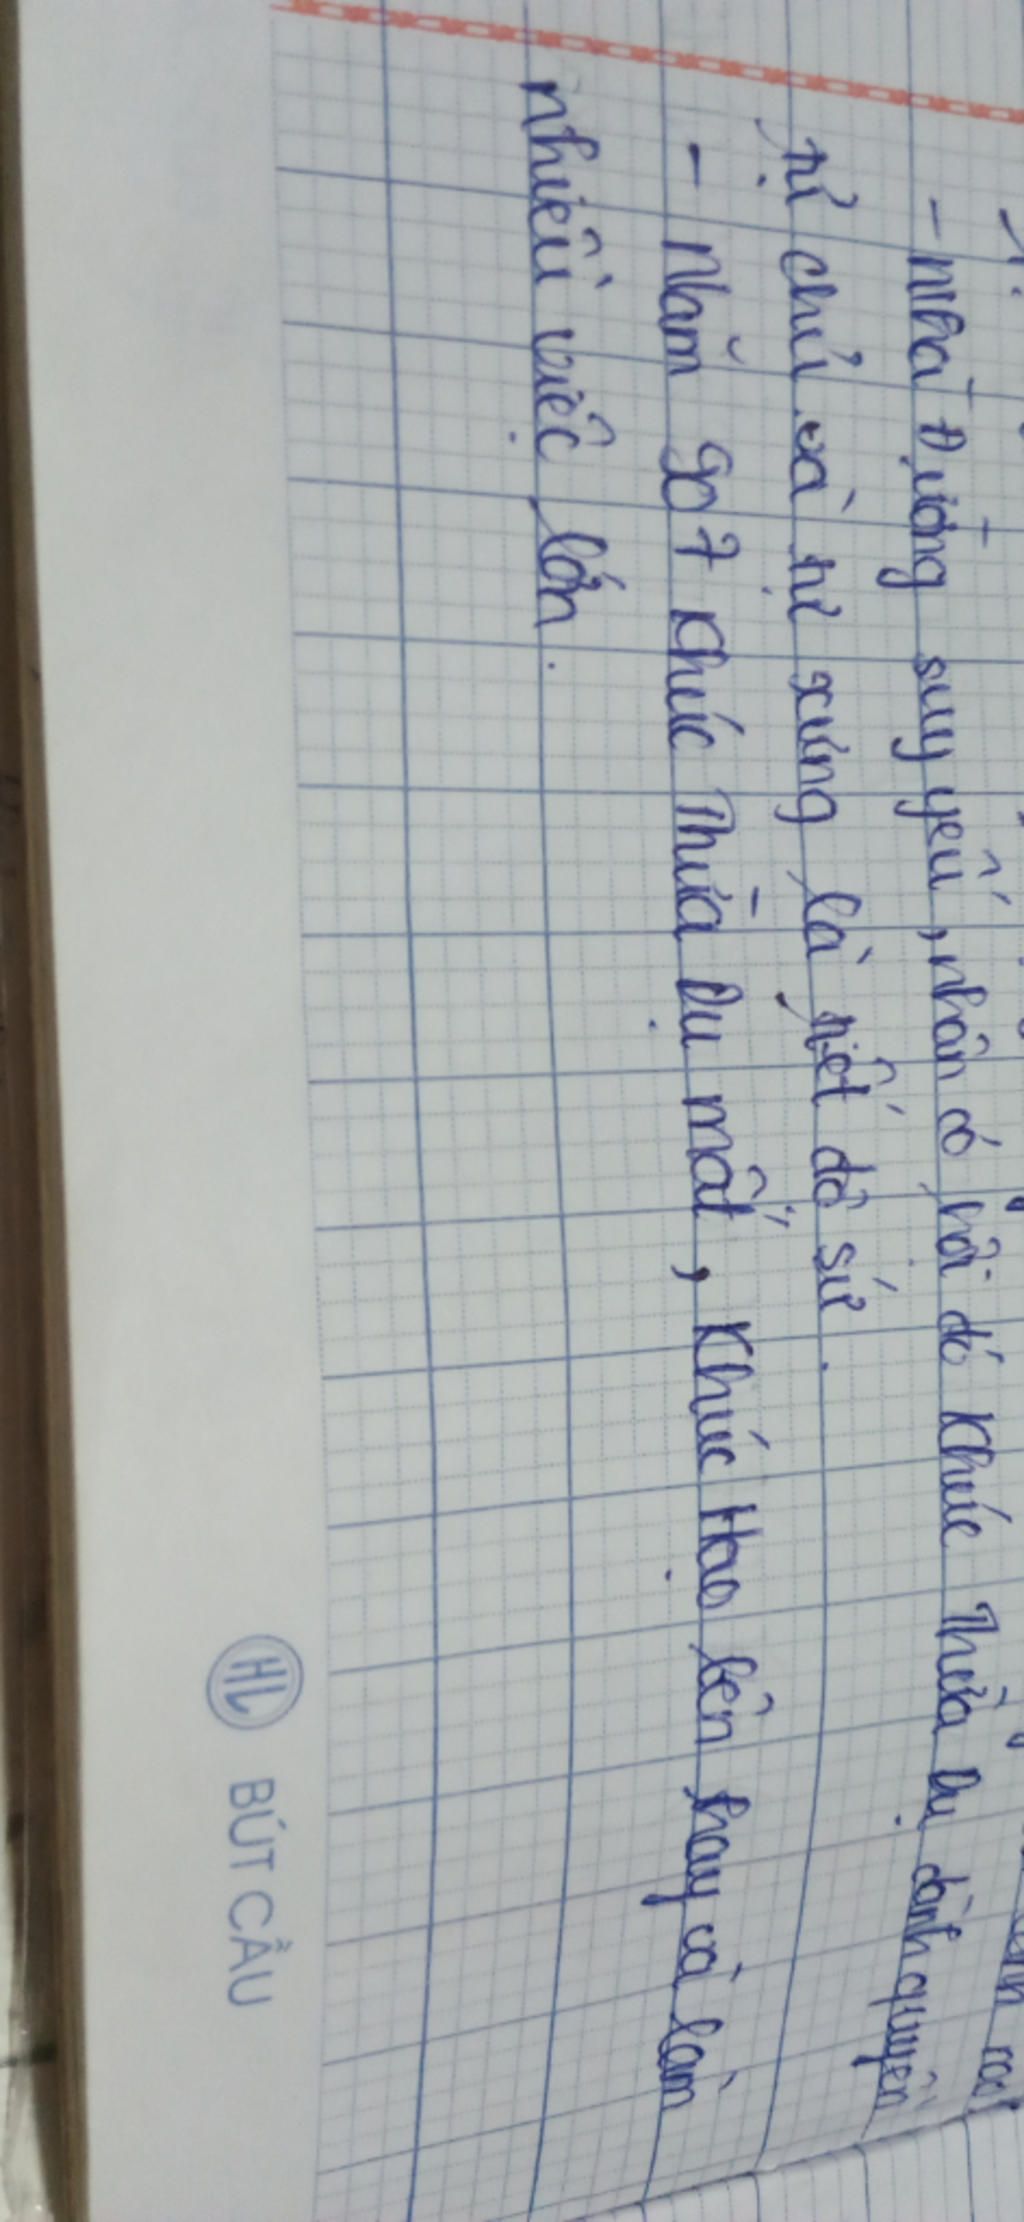 - Nhà Đường suy yếu, nhân có hội đó Khúc Thừa Dụ dành quyền
tự chủ và tự xưng là tiết độ sứ.
- Năm 907 Khúc Thừa Dụ mất, Khúc Hạo lên thay và làm
nhiều việc lớn.
HL BÚT CẦU